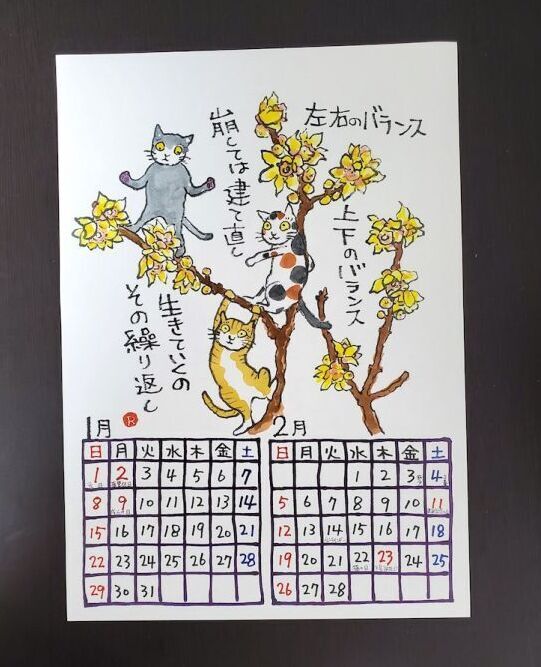 左右のバランス
上下のバランス
崩しては建て直し
生きていくの
その繰り返し
1月
R
日 月 火 水 木 金 土
1 2 3 4 5 6 7
8 9 10 11 12 13 14
15 16 17 18 19 20 21
22 23 24 25 26 27 28
29 30 31
2月
日 月 火 水 木 金 土
1 2 3 4
5 6 7 8 9 10 11
12 13 14 15 16 17 18
19 20 21 22 23 24 25
26 27 28